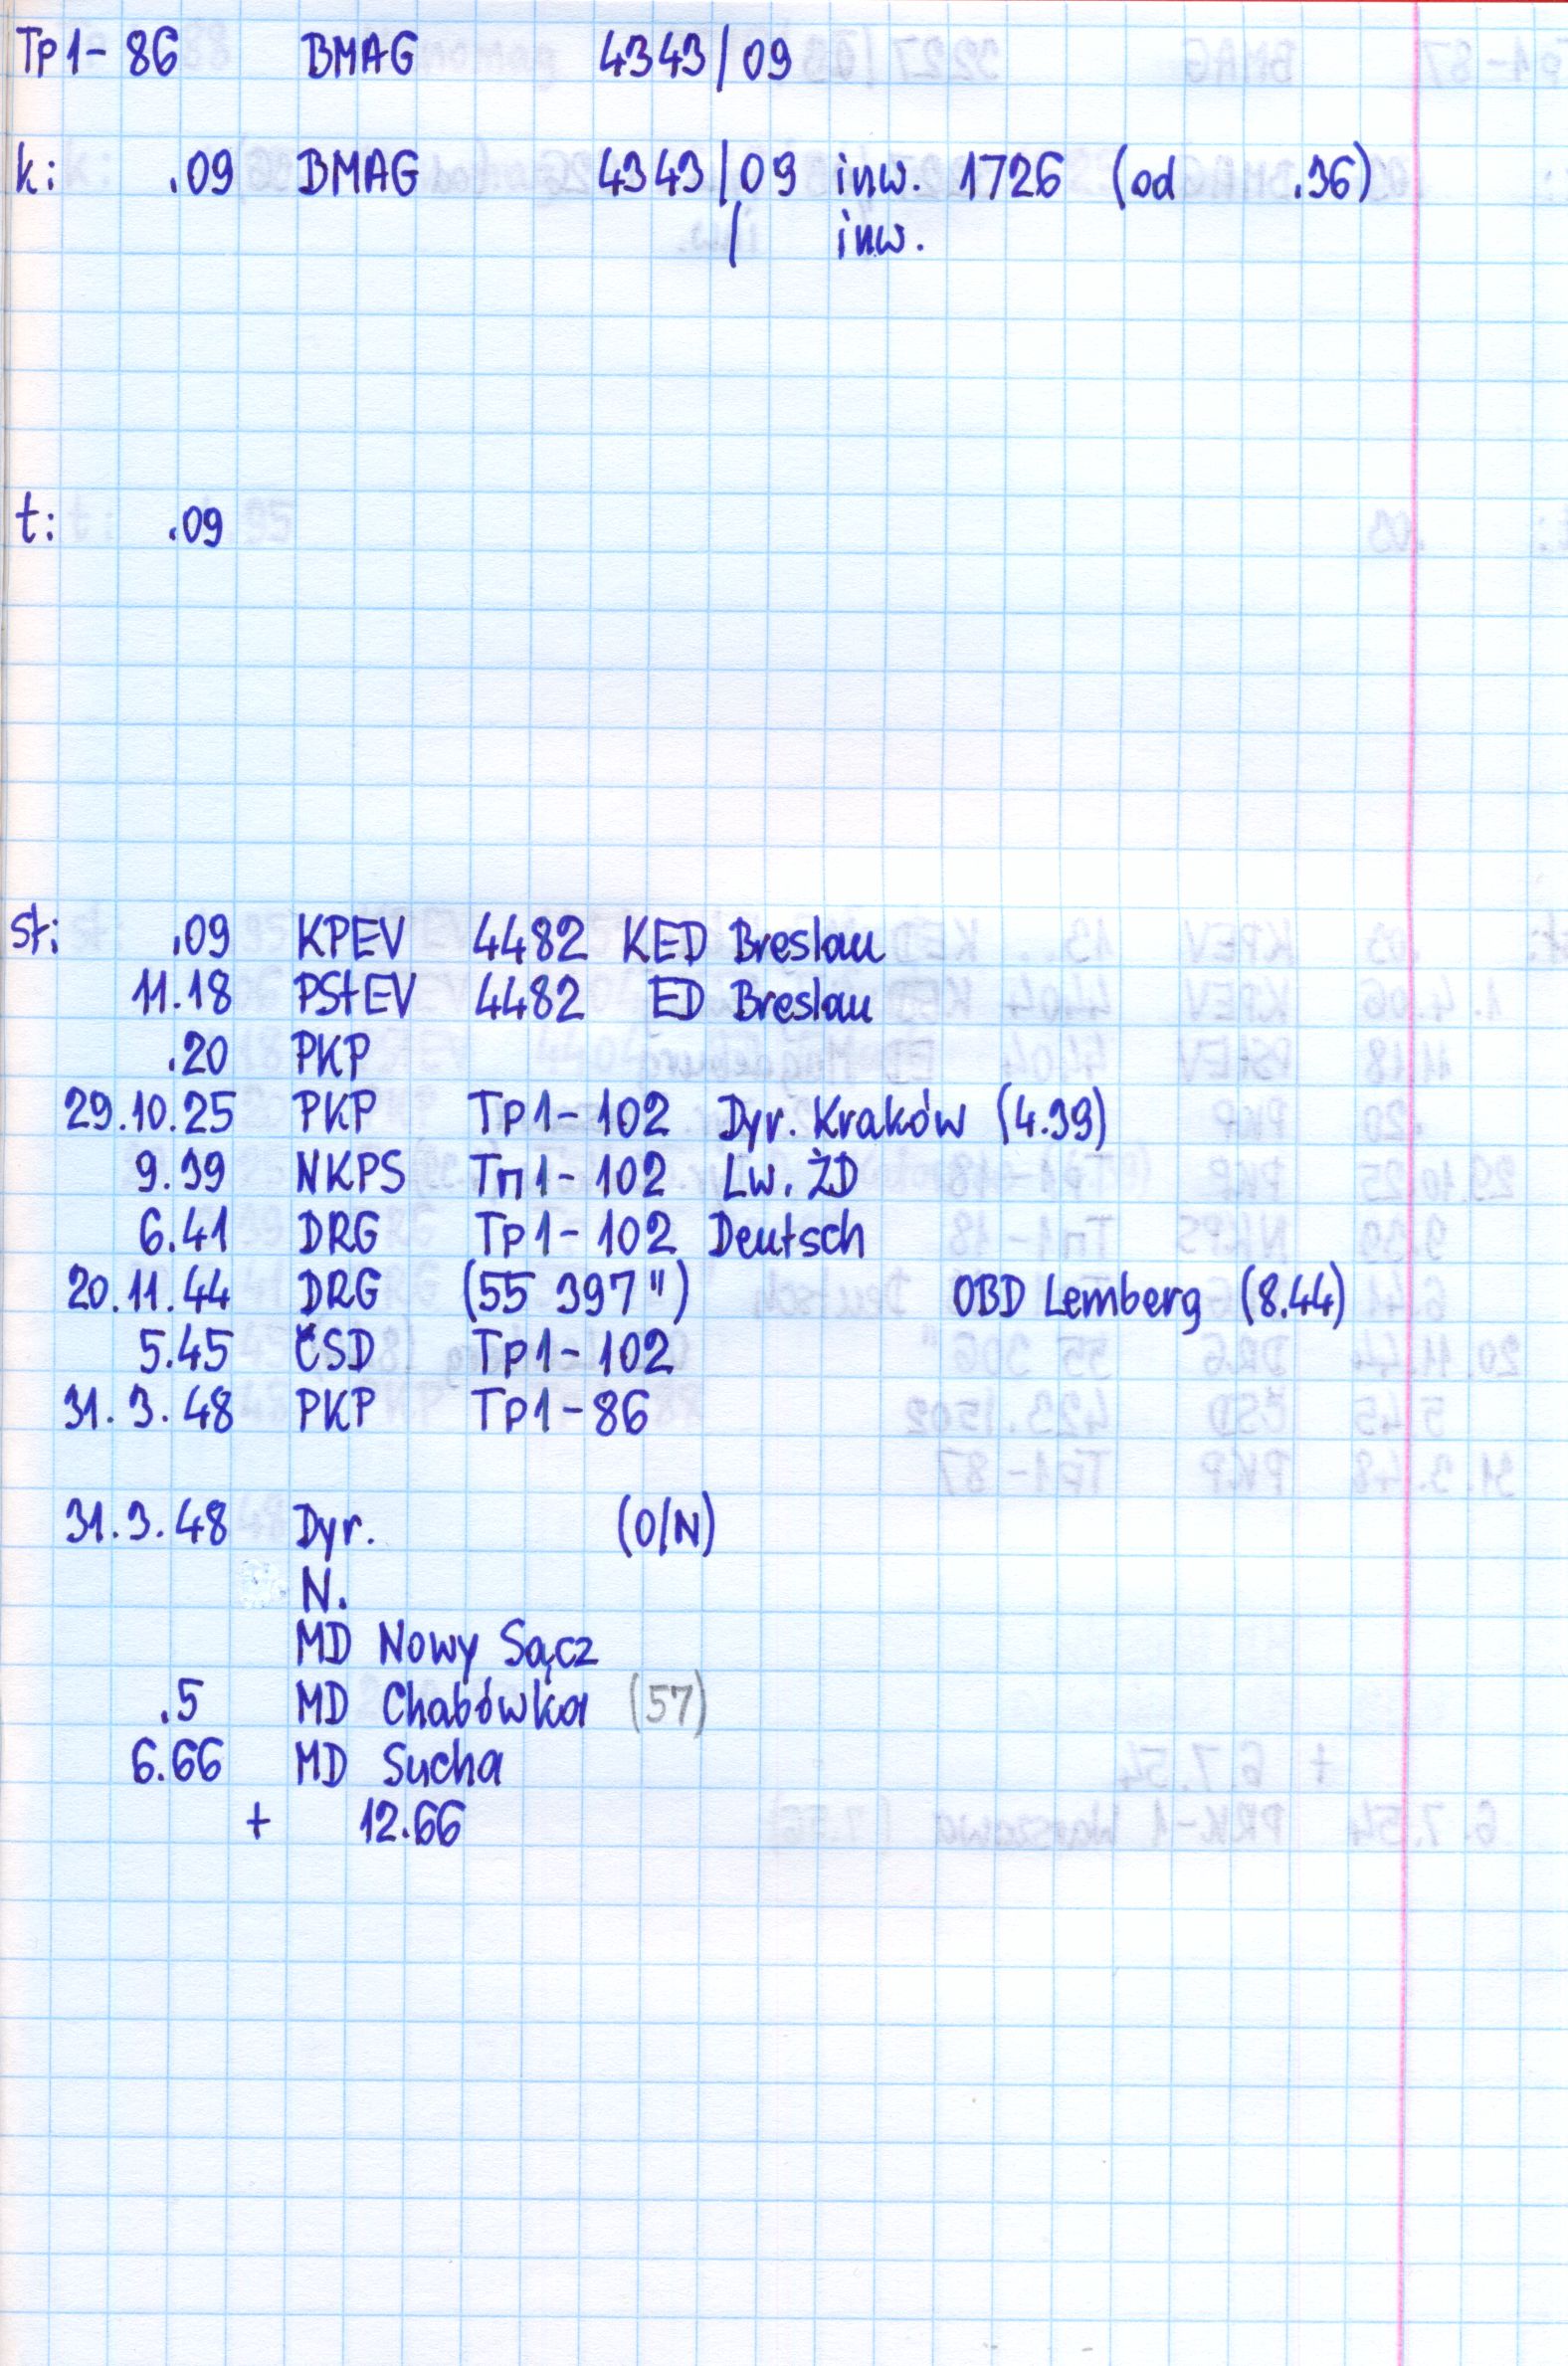 Tp1-86 BMAG 4343/09
k: .09 BMAG 4343/09 inw. 1726 (od .36)
/ inw.
t: .09
st: .09 KPEV 4482 KED Breslau
11.18 PStEV 4482 ED Breslau
.20 PKP
29.10.25 PKP Tp1-102 Dyr. Kraków (4.39)
9.39 NKPS Тп1-102 Lw. ŻD
6.41 DRG Tp1-102 Deutsch
20.11.44 DRG (55 397") OBD Lemberg (8.44)
5.45 ČSD Tp1-102
31.3.48 PKP Tp1-86
31.3.48 Dyr. (O/N)
N.
MD Nowy Sącz
.5 MD Chabówka (57)
6.66 MD Sucha
+ 12.66